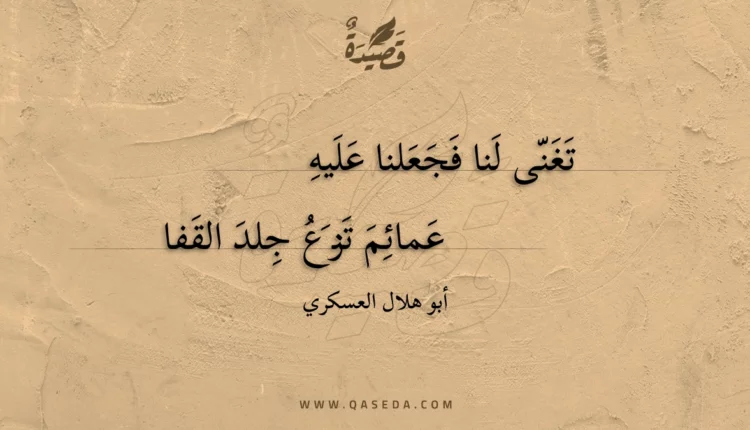 قَصِيدَةٌ
تَغَنّى لَنا فَجَعَلنا عَلَيهِ
عَمائِمَ تَنزَعُ جِلدَ القَفا
أبو هلال العسكري
WWW.QASEDA.COM